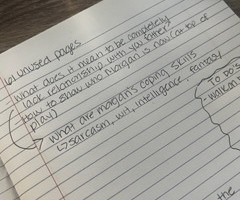 61 unused pages
What does it mean to be completely
lack relationship with your father
How to show who Morgan is now (at top of
play)
What are morgan's coping skills
↳ sarcasm, wit, intelligence - fantasy
To do:
the